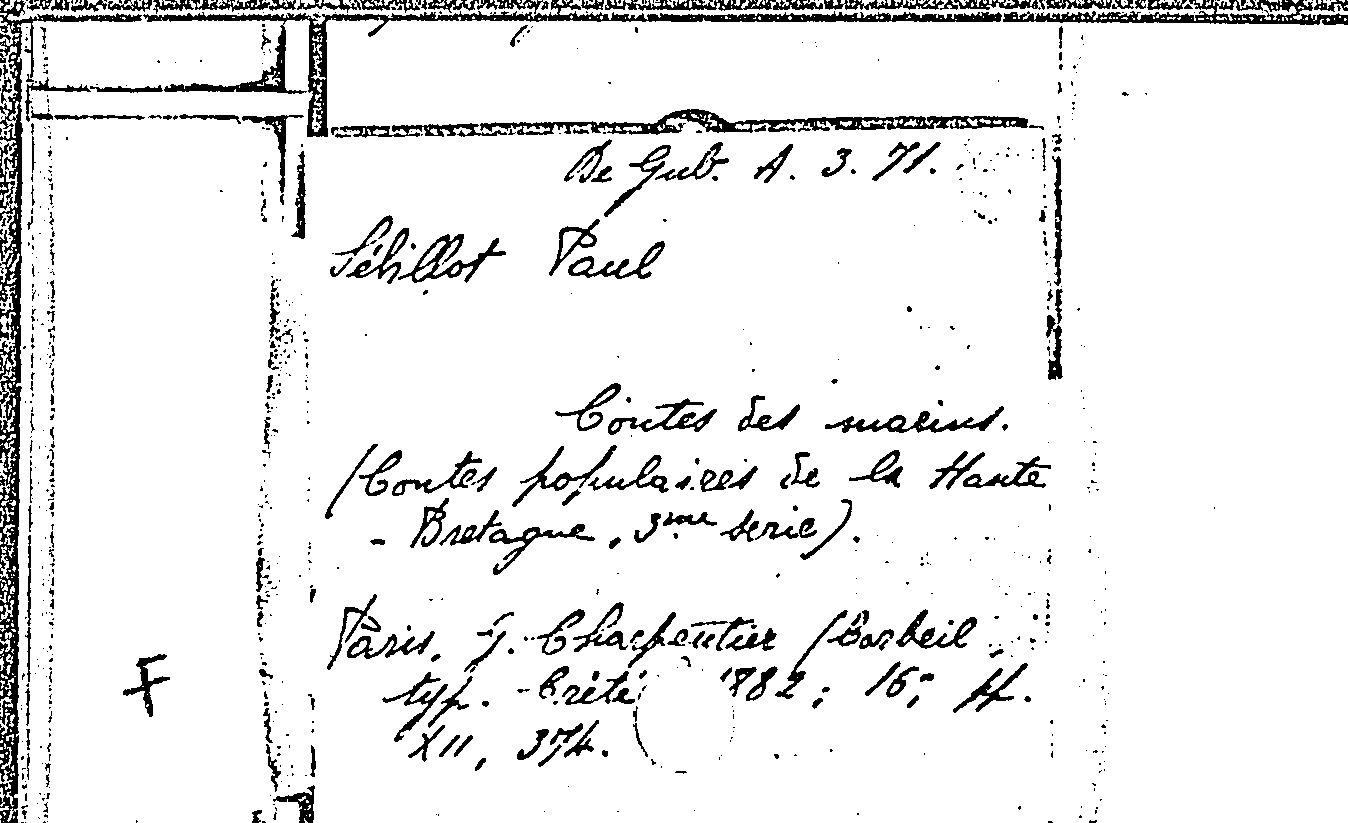 De Gub. A. 3. 71.
Sébillot Paul
Contes des marins.
(Contes populaires de la Haute
- Bretagne, 3me serie).
Paris, G. Charpentier (Corbeil,
typ. Crété 1882; 16°, pp.
XII, 374.
F